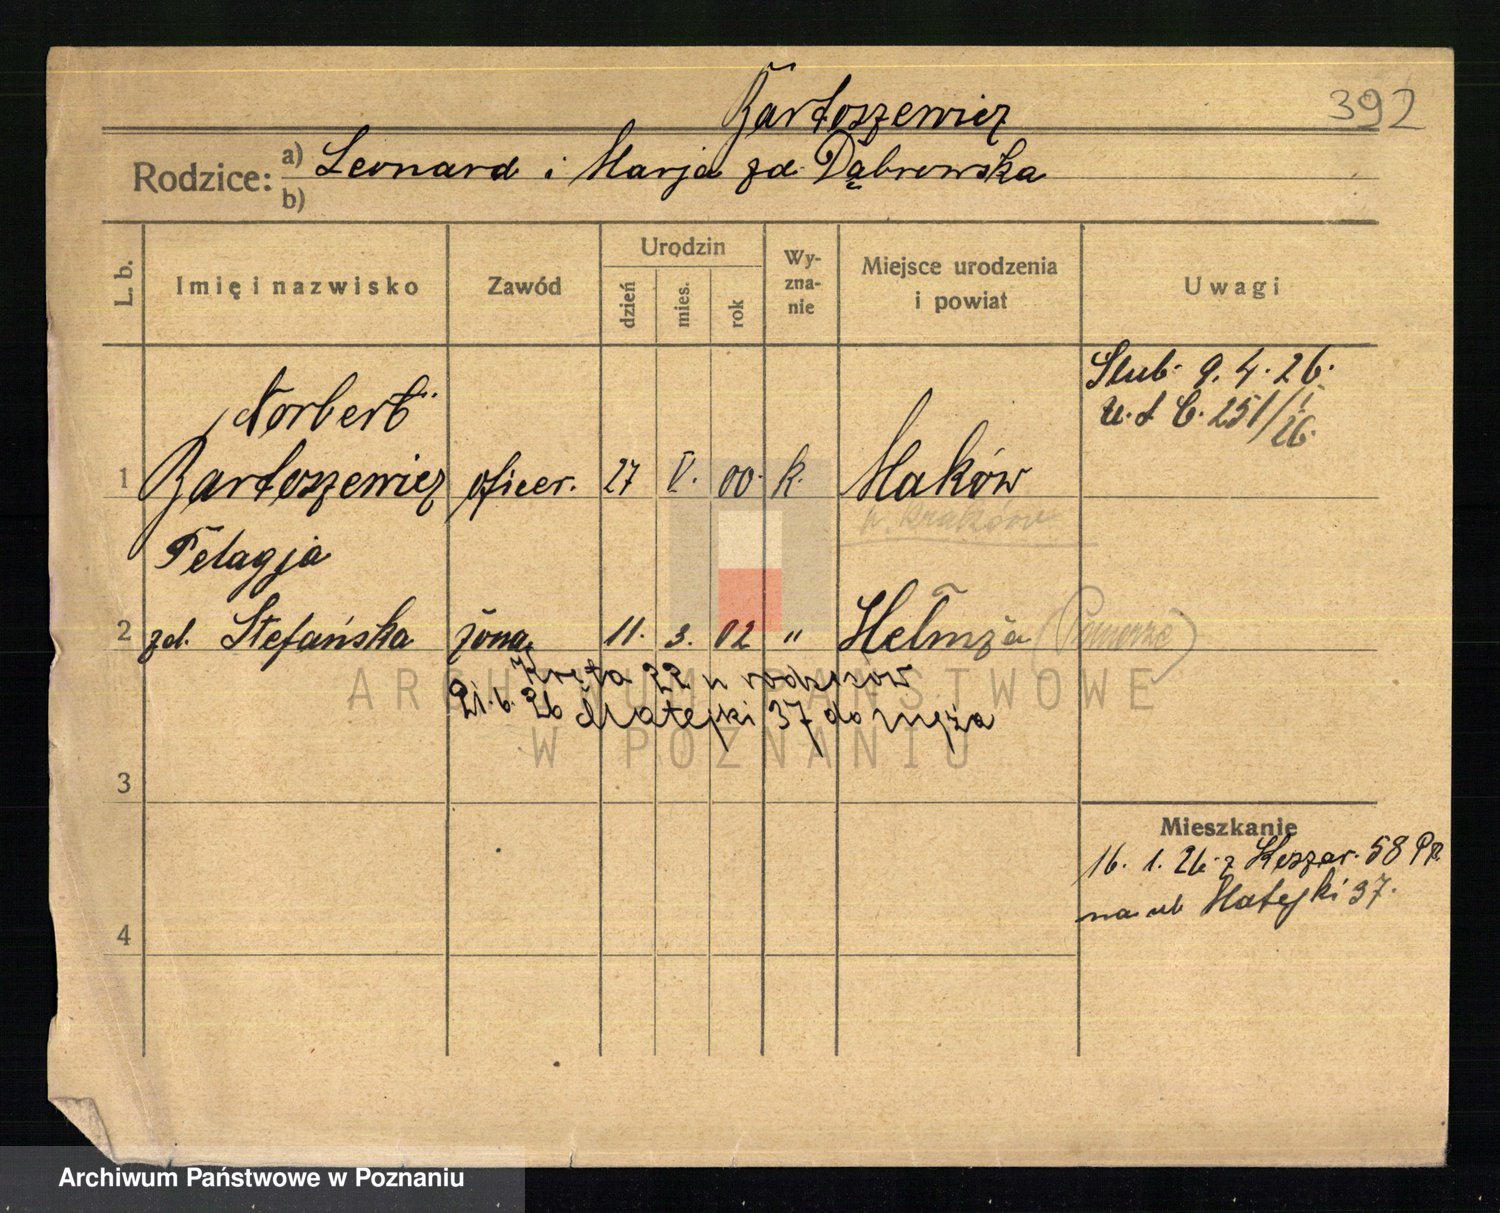 Bartoszewicz
392
Rodzice: a) Leonard i Marja zd. Dąbrowska
b)
L. b.
Imię i nazwisko
Zawód
Urodzin
dzień
mies.
rok
Wy-
zna-
nie
Miejsce urodzenia
i powiat
Uwagi
Ślub. 9. 4. 26.
U. S C. 251/I/26.
Norbert
1 Bartoszewicz oficer. 27 V. 00. k. Maków
p. Kraków
Pelagja
2 zd. Stefańska żona 11. 3. 02 " Hełmża (Pomorze)
Kręta 22 u rodziców
21. 6. 26 Matejki 37 do męża
3
4
Mieszkanie
16. 1. 26. z Koszar. 58 Pp.
na ul Matejki 37.
ARCHIWUM PAŃSTWOWE
W POZNANIU
Archiwum Państwowe w Poznaniu